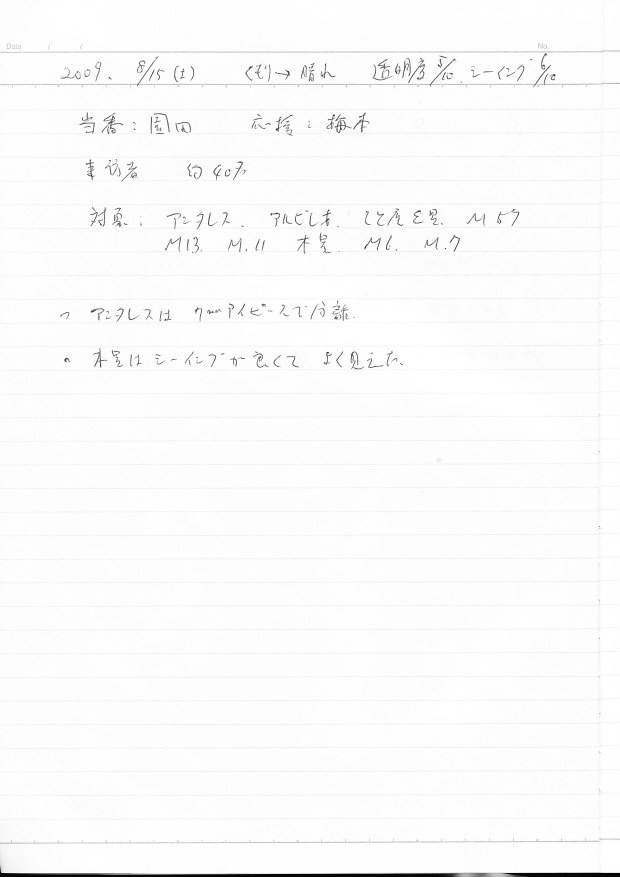 Date / / No.
2009. 8/15 (土) くもり→晴れ 透明度 5/10 シーイング 6/10
当番：園田 応援：梅本
来訪者 約40名
対象：アンタレス、アルビレオ、こと座ε星、M57
M13. M.11 木星. M6. M.7
・アンタレスは 7mmアイピースで分離.
・木星はシーイングが良くて よく見えた.